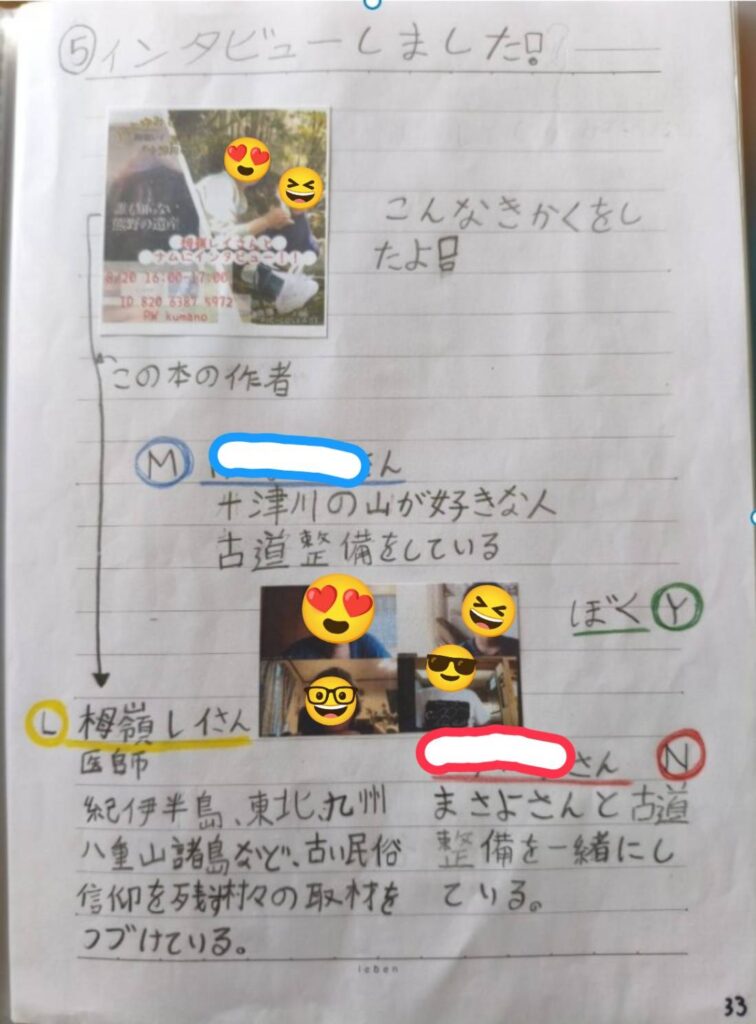 ⑤インタビューしました!
誰も知らない
熊野の遺産
栂嶺レイさんと
ナムにインタビュー!!
8/20 16:00-17:00
ID 820 6387 5972
PW kumano
こんなきかくをし
たよ!
この本の作者
M さん
十津川の山が好きな人
古道整備をしている
ぼく Y
L 栂嶺レイさん
医師
紀伊半島、東北、九州
八重山諸島など、古い民俗
信仰を残す村々の取材を
つづけている。
さん N
まさよさんと古道
整備を一緒にし
ている。
leben
33